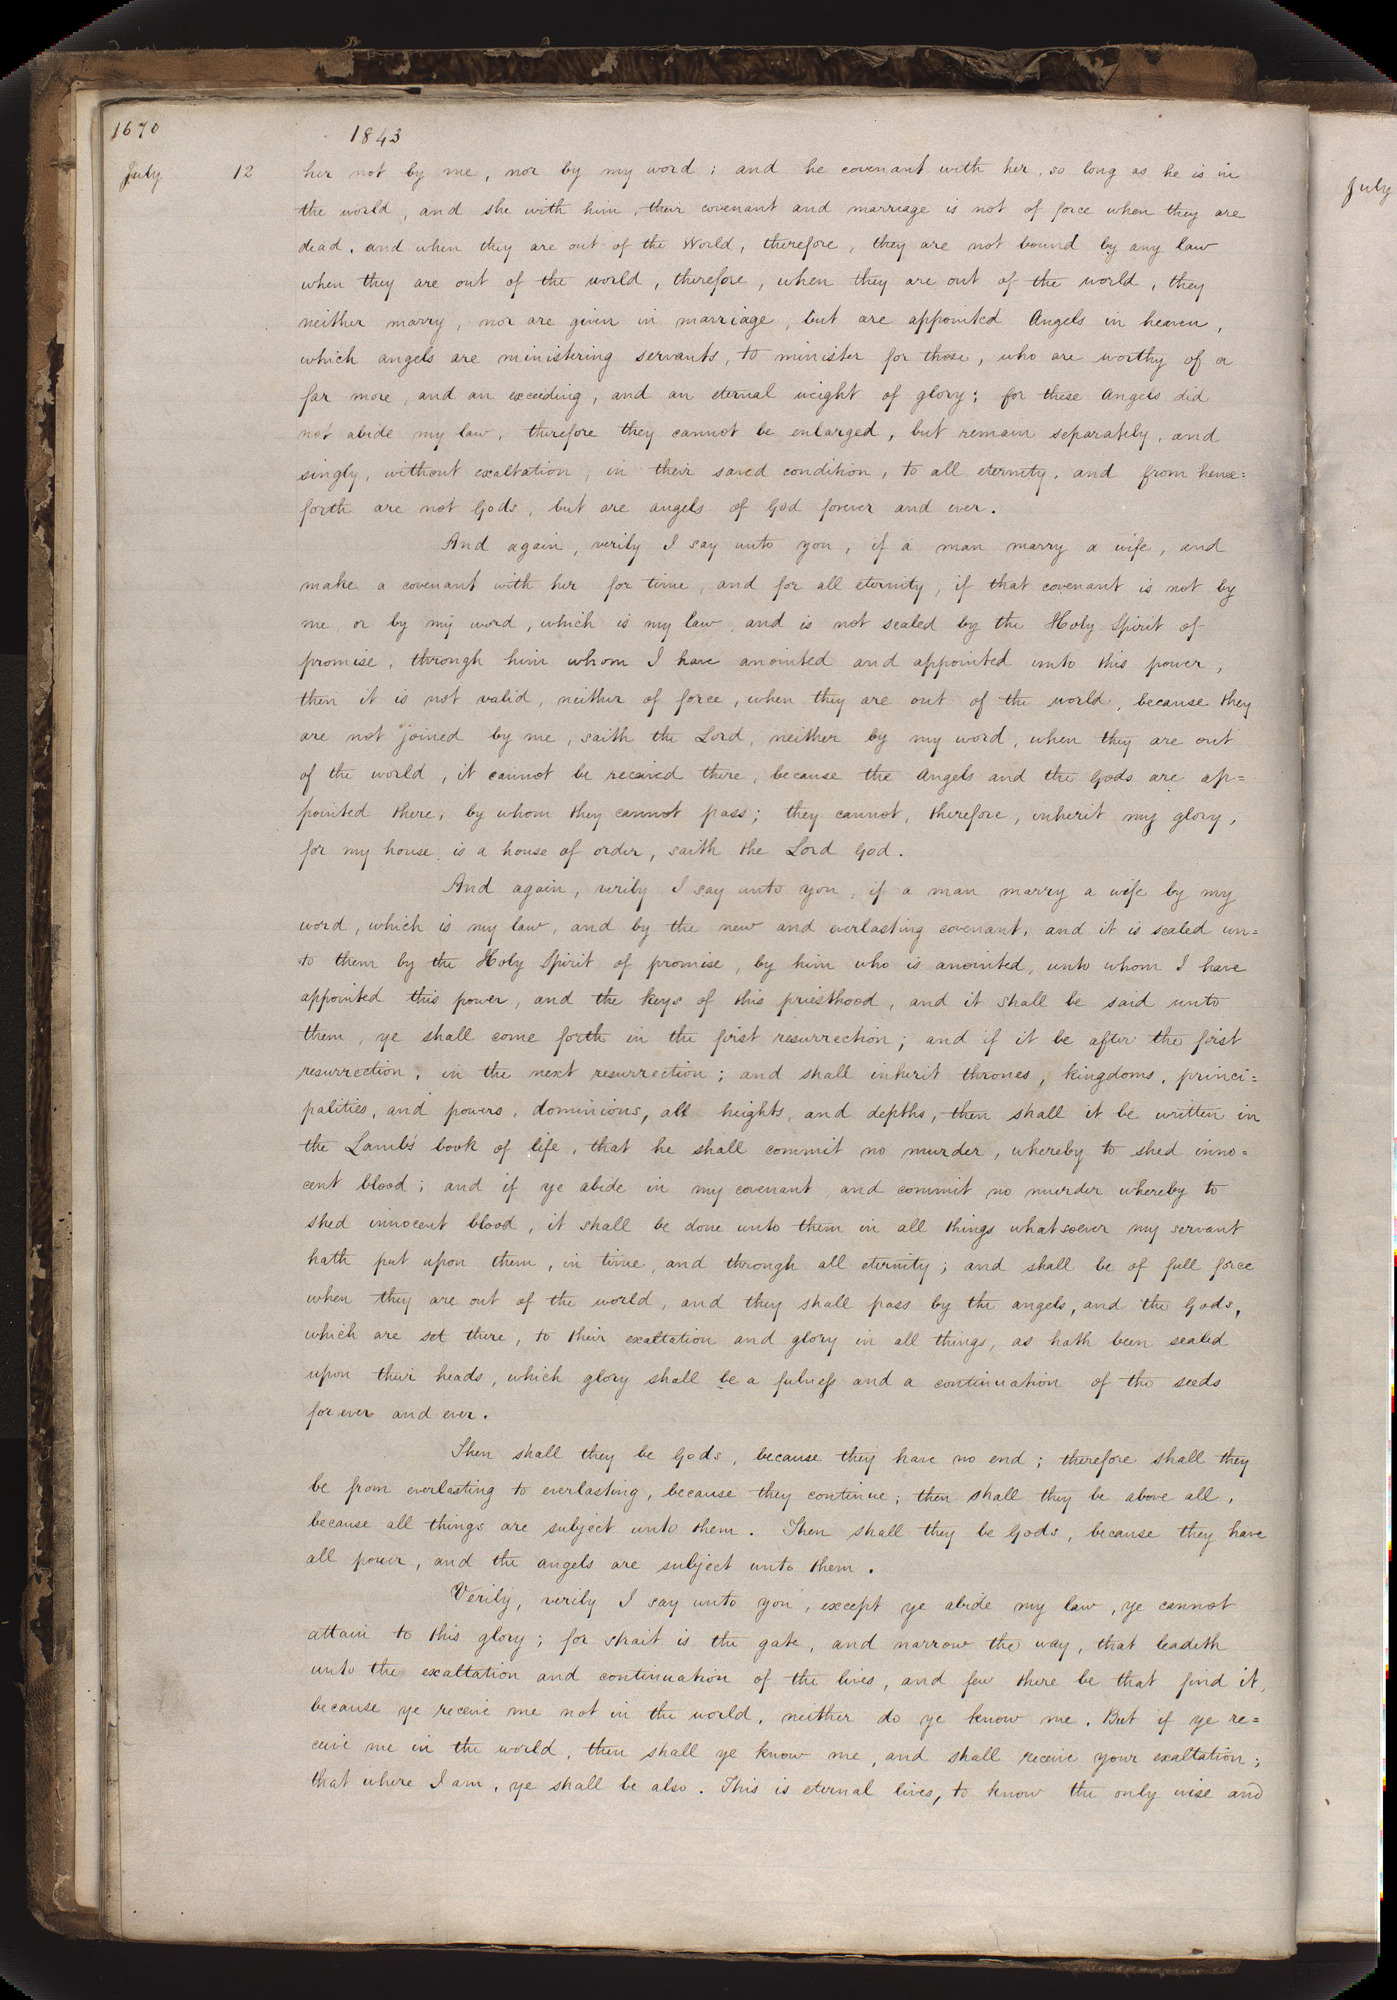 1670
1843
July 12 her not by me, nor by my word; and he covenant with her, so long as he is in
July
the world, and she with him, their covenant and marriage is not of force when they are
dead, and when they are out of the World, therefore, they are not bound by any law
when they are out of the world, therefore, when they are out of the world, they
neither marry, nor are given in marriage, but are appointed Angels in heaven,
which angels are ministering servants, to minister for those, who are worthy of a
far more, and an exceeding, and an eternal weight of glory; for these Angels did
not abide my law, therefore they cannot be enlarged, but remain separately, and
singly, without exaltation, in their saved condition, to all eternity, and from hence=
forth are not Gods, but are angels of God forever and ever.
And again, verily I say unto you, if a man marry a wife, and
make a covenant with her for time, and for all eternity, if that covenant is not by
me or by my word, which is my law, and is not sealed by the Holy Spirit of
promise, through him whom I have anointed and appointed unto this power,
then it is not valid, neither of force, when they are out of the world, because they
are not joined by me, saith the Lord, neither by my word, when they are out
of the world, it cannot be received there, because the Angels and the Gods are ap=
pointed there, by whom they cannot pass; they cannot, therefore, inherit my glory,
for my house is a house of order, saith the Lord God.
And again, verily I say unto you, if a man marry a wife by my
word, which is my law, and by the new and everlasting covenant, and it is sealed un=
to them by the Holy Spirit of promise, by him who is anointed, unto whom I have
appointed this power, and the keys of this priesthood, and it shall be said unto
them, ye shall come forth in the first resurrection; and if it be after the first
resurrection, in the next resurrection; and shall inherit thrones, kingdoms, princi=
palities, and powers, dominions, all heights, and depths, then shall it be written in
the Lamb's book of life, that he shall commit no murder, whereby to shed inno=
cent blood; and if ye abide in my covenant and commit no murder whereby to
shed innocent blood, it shall be done unto them in all things whatsoever my servant
hath put upon them, in time, and through all eternity; and shall be of full force
when they are out of the world, and they shall pass by the angels, and the Gods,
which are set there, to their exaltation and glory in all things, as hath been sealed
upon their heads, which glory shall be a fulness and a continuation of the seeds
for ever and ever.
Then shall they be Gods, because they have no end; therefore shall they
be from everlasting to everlasting, because they continue; then shall they be above all,
because all things are subject unto them. Then shall they be Gods, because they have
all power, and the angels are subject unto them.
Verily, verily I say unto you, except ye abide my law, ye cannot
attain to this glory; for strait is the gate, and narrow the way, that leadeth
unto the exaltation and continuation of the lives, and few there be that find it,
because ye receive me not in the world, neither do ye know me. But if ye re=
ceive me in the world, then shall ye know me, and shall receive your exaltation;
that where I am, ye shall be also. This is eternal lives, to know the only wise and